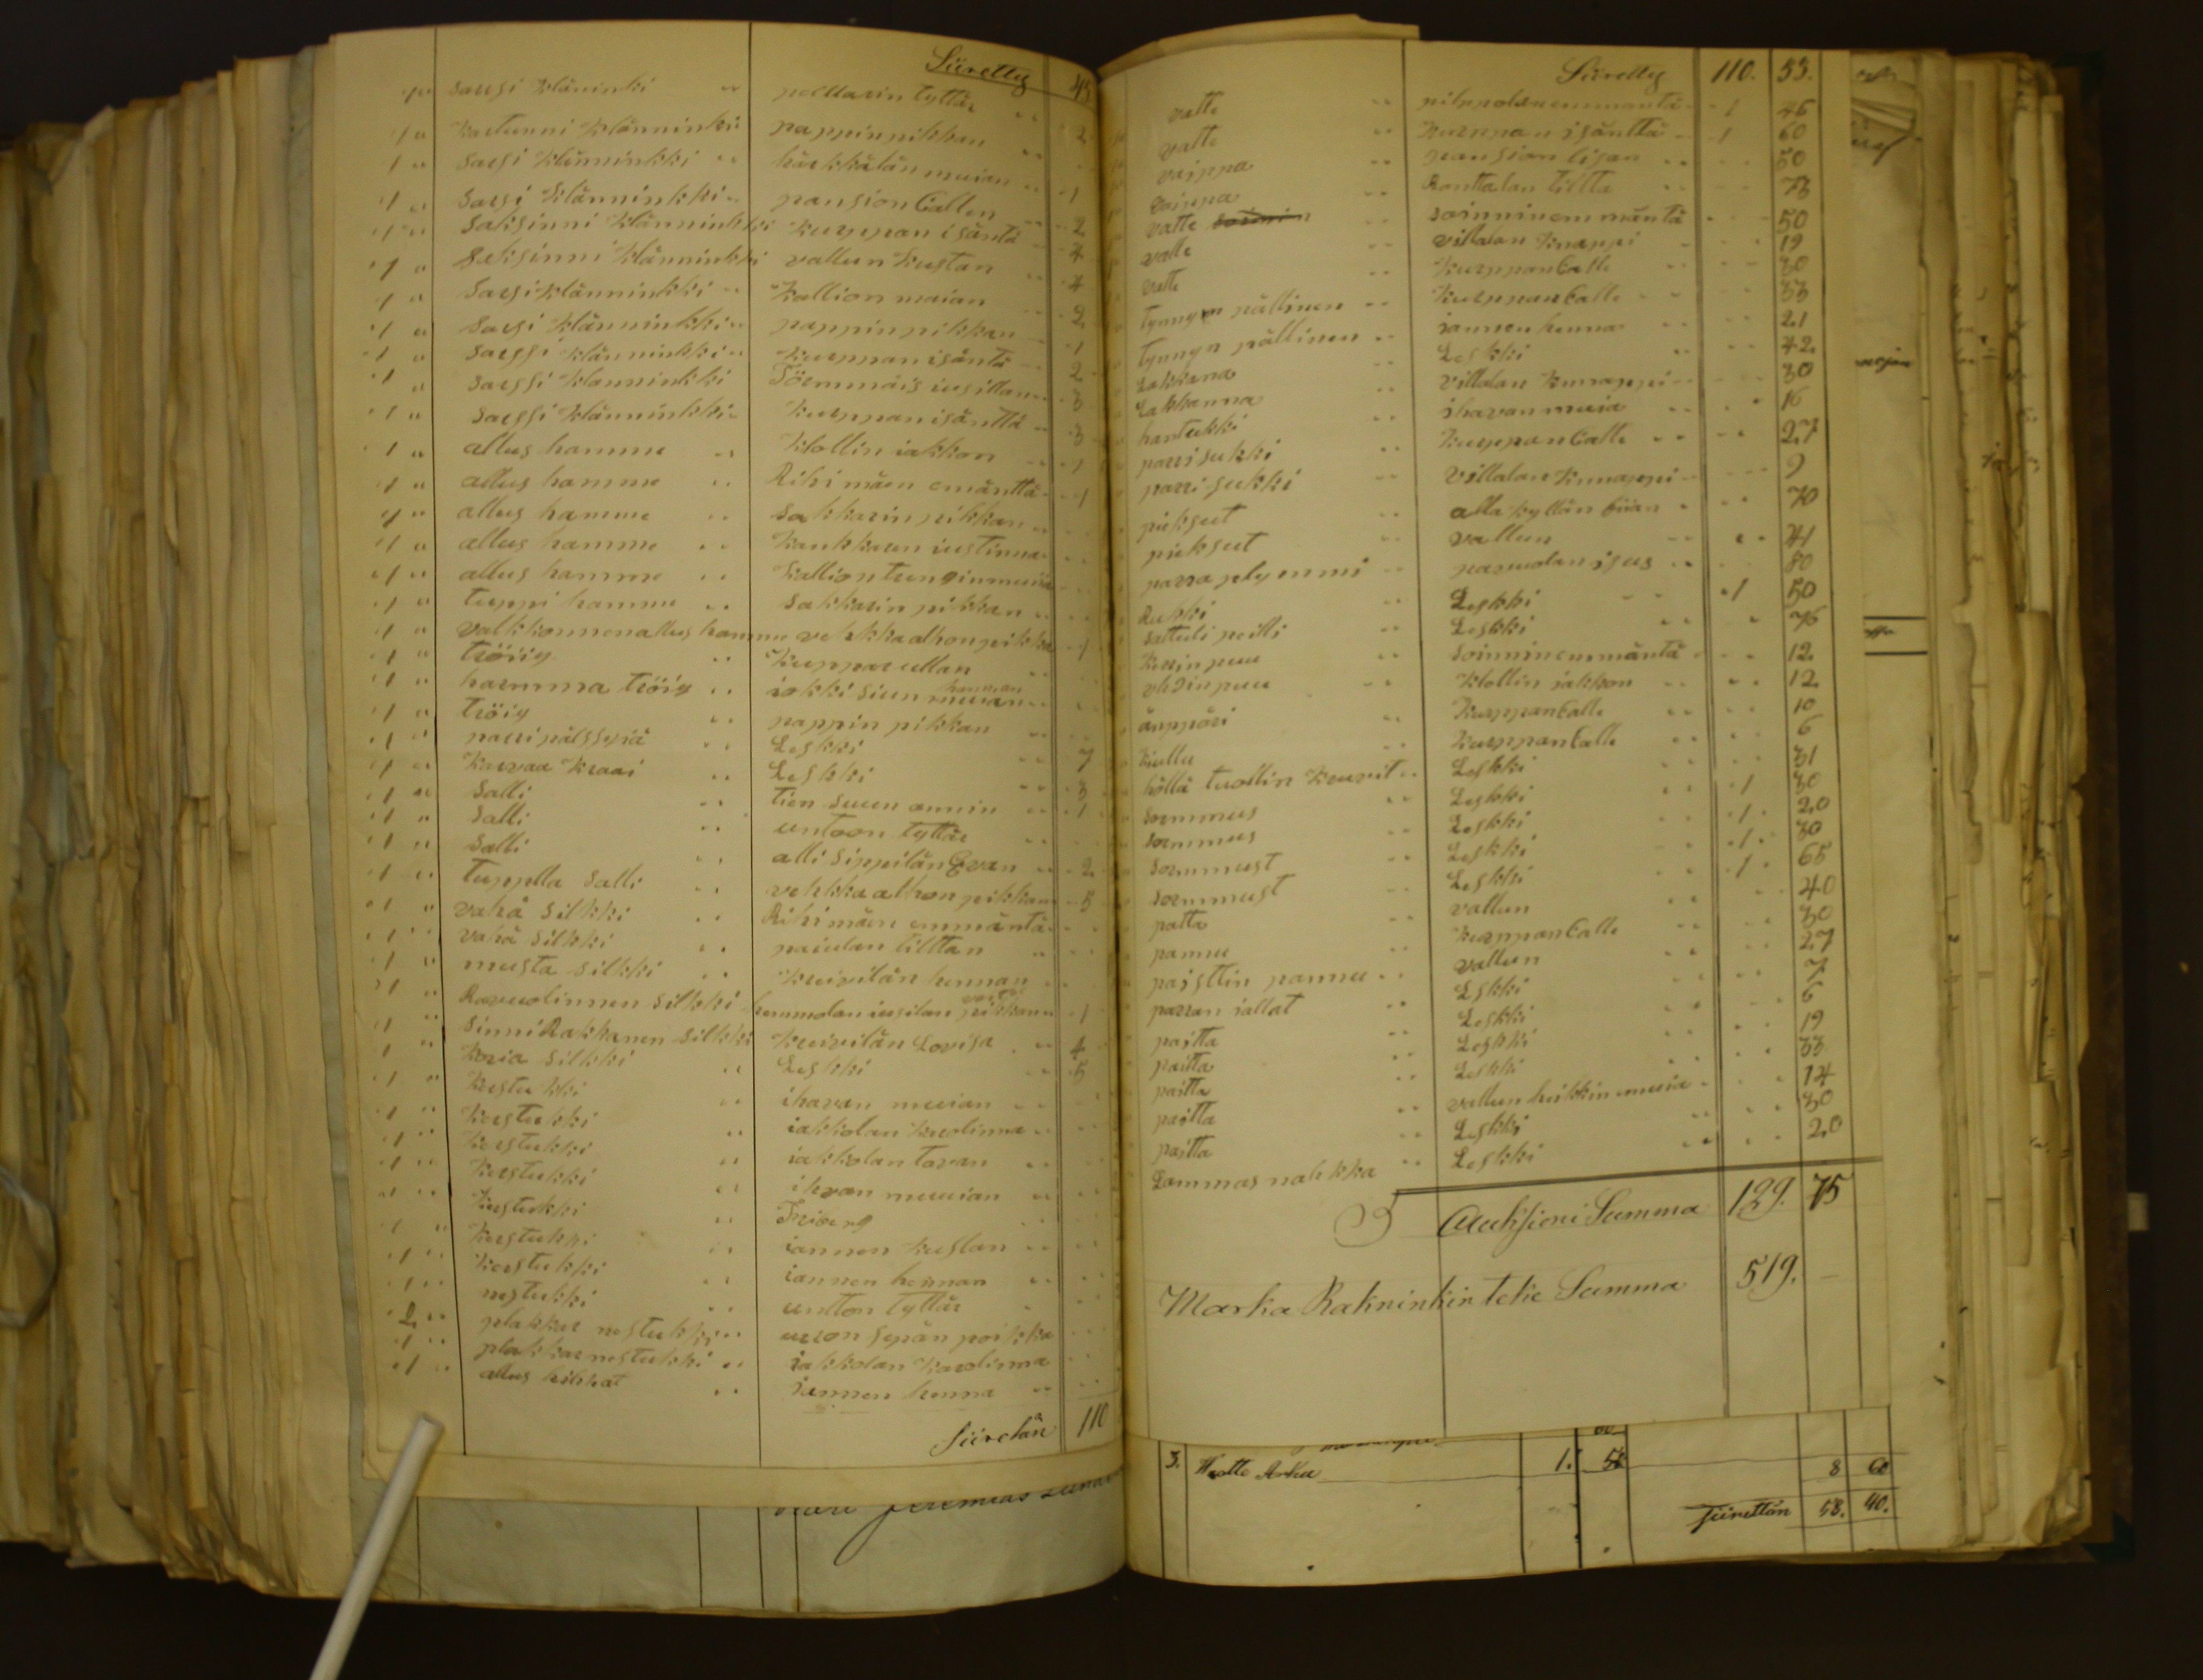 Siiretty 43
1 " sarsi kläninki " pelttarin tyttär "
1 " kartunni klänninki pappin pikkan " 2
1 " sarsi klänninkki " härkkälän muian "
1 " sarsi klänninkki " pansion Callen " 1
1 " saksinni klänninkki kurppan isäntä " 2
1 " saksinni klänninkki vallun kustan " 4
1 " sarsi klänninkki " kallion muian " 4
1 " sarsi klänninkki " pappin pikkan " 2
1 " sarssi klänninkki " kurppan isäntä " 1
1 " sarssi klanninkki Törmmäis iusillan " 2
1 " sarssi klänninkki " kurppan isänttä " 3
1 " allus hamme " klollin iakkon " 3
1 " allus hamme " Rihi mäen emänttä " 1
1 " allus hamme " sakkarin pikkan " 1
1 " allus hamme " kankkaren iustinna "
1 " allus hamme " kallion tunginmuia
1 " tuppi hamme " sakkarin pikkan "
1 " valkkonnen allus hamme vehkkaalhon pikka 1
1 " tröiiy " kuppar ullan "
1 " harmma tröiy " iokki siun hannan muian "
1 " tröiy " pappin pikkan "
1 " parsi pälssyiä " Leskki " 7
1 " karvaa kraai " Leskki " 3
1 " salli " tien suun annin " 1
1 " salli " untoon tyttär "
1 " salli " alli sippilän Evan " 2
1 " tuppella salli " vehkkaalhon pikkan " 5
1 " vahä silkki " Rihimäen emmäntä "
1 " vahä silkki " paiulan tilttan "
1 " musta silkki " kuivilän hennan "
1 " Ravuolinnen silkki hemmolan iusilan pikkan " 1
1 " sinni Rakkanen silkki kuivilän Lovisa " 4
1 " koria silkki " Leskki " 5
1 " kestukki " iharan muian "
1 " kestukki " iakkolan kuolinna "
1 " kestukki " iakkolan tavan "
1 " kestukki " ihran muuian "
1 " kestukki " Friberg
1 " kestukki " iannen kustan "
1 " kestukki " iannen hennan "
1 " nestukki " unton tyttär
2 " plakkar nestukki " uron sepän poikka
1 " plakkar nestukki " iakkolan karolinna
1 " allus hihhat " iannen henna "
Siiretän 110
Siiretty 110. 53.
valte " pihpolan emmäntä 1 46
valte " kurppan isänttä 1 60
vaippa " pansion lisan " 50
vaippa " Ronttalan tillta " 73
valte soinnin " soinninemmäntä 50
valte " villalan knappi 19
valte " kurppan Calle 30
tyungyn pällinen " kurppan Calle " 33
tyungyn pällinen " iannen henna " 21
Lakkana " Leskki " 42
Lakkanna " villalan knnappi 30
hantukki " iharan muia " 16
parri sukki " kurppan Calle " 27
parri sukki " villalan knnappi 9
pieksut " alla kyllän Eiian 70
pieksut " vallun 41
parraplymmi " parvolan isus " 80
Rukki " Leskki 1 50
sattuli peitti " Leskki 76
kerin puu " soinninemmäntä 12
yhdinpuu " klollin iakkon 12
ämppäri " kurppan Calle 10
kiullu " kurppan Calle 6
höllä tuollin kruvit " Leskki 31
sormmus " Leskki 1 30
sormmus " Leskki 1 20
sormmust " Leskki 1 30
sormmust " Leskki 1 65
patta " vallun 40
pannu " kurppan Calle 30
paisttin pannu " vallun 27
parran iallat " Lskki 7
paitta " Leskki 6
paitta " Leskki 19
paitta " Leskki 33
paitta " vallun heikkin muia 14
paitta " Leskki 30
Lammas nahkka " Leskki 20
Auksioni Summa 129. 75
Marka Rakninkin teke Summa 519. —
3. Watte Arku 1. 8 60
Siirettän 58. 40.